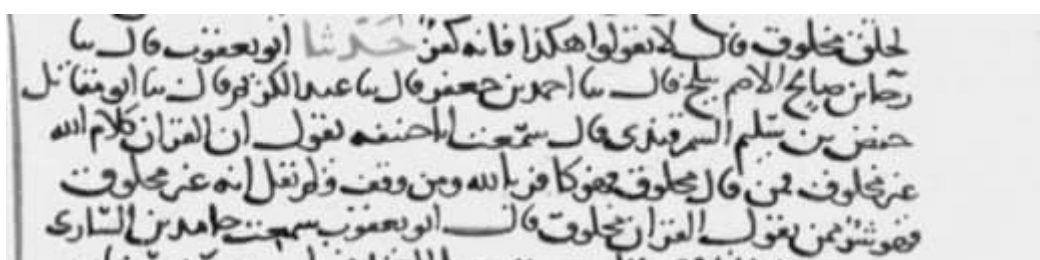 لخلق مخلوق قال لا تقولوا هكذا فانه كفر حدثنا ابو يعقوب قال سا
رجا بن صالح الامم ببلخ قال سا احمد بن جعفر قال سا عبد الكريم قال سا ابو مقاتل
حفص بن سلم السمرقندى قال سمعت ابا حنيفه يقول ان القران كلام الله
غير مخلوق فمن قال مخلوق فهو كافر بالله ومن وقف ولم يقل انه غير مخلوق
فهو شر ممن يقول القران مخلوق قال ابو يعقوب سمعت حامد بن